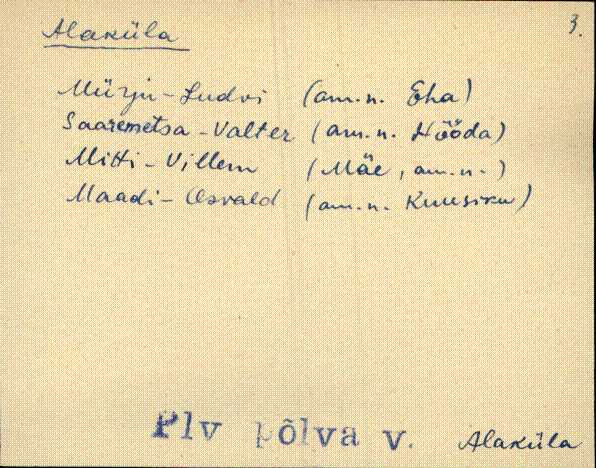 Alaküla
3.
Mürju-Ludvi (am.n. Eha)
Saaremetsa-Valter (am.n. Hööda)
Mitti-Villem (Mäe, am.n.)
Maadi-Osvald (am.n. Kuusiku)
Plv Põlva v. Alaküla